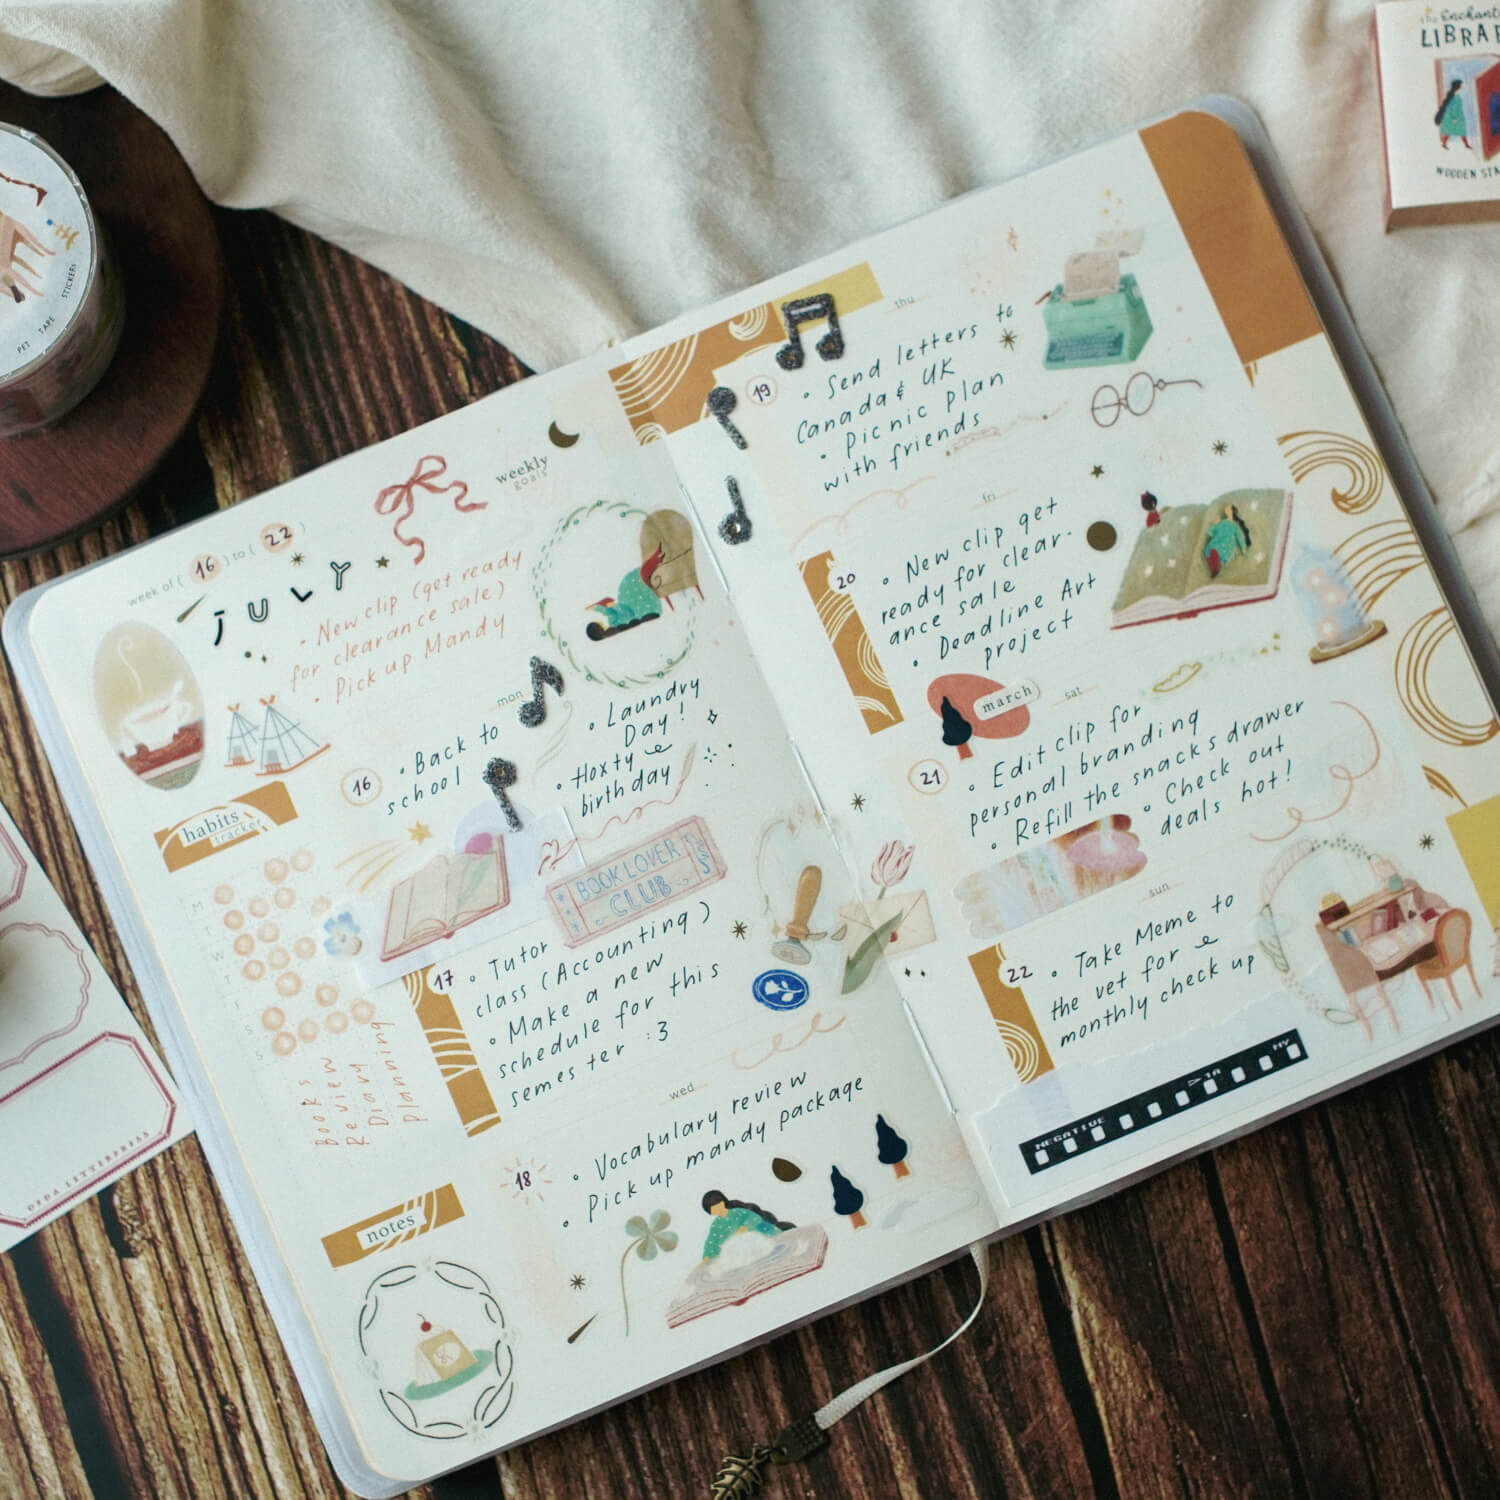 week of ( 16 ) to ( 22 )
JULY
weekly
goals
• New clip (get ready
for clearance sale)
• Pick up Mandy
habits
tracker
M
T
W
T
F
S
S
Books
Review
Diary
planning
notes
mon
16
• Back to
school
• Laundry
Day!
• Hoxty
birthday
BOOK LOVER
CLUB
17
• Tutor
class (Accounting)
• Make a new
schedule for this
semester :3
wed
18
• Vocabulary review
• Pick up mandy package
thu
19
• Send letters to
Canada & UK
• Picnic plan
with friends
fri
20
• New clip get
ready for clear-
ance sale
• Deadline Art
project
march
sat
21
• Edit clip for
personal branding
• Refill the snacks drawer
• Check out
deals hot!
sun
22
• Take Meme to
the vet for
monthly check up
NEGATIVE
The Enchant
LIBRAR
WOODEN STA
PET TAPE STICKERS